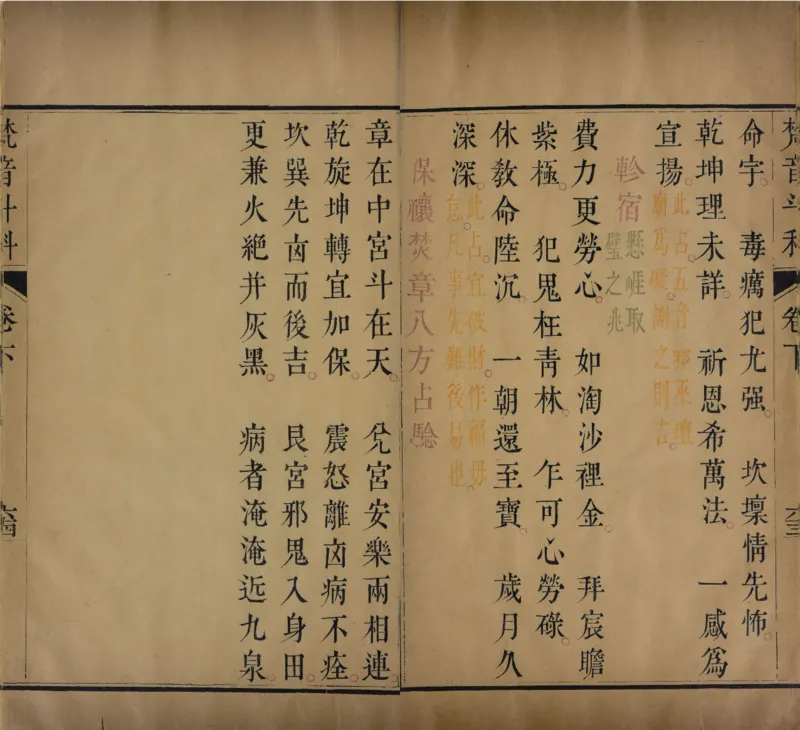 梵音斗科 卷下 六三
命宇。毒癘犯尤强。坎壇情先怖。
乾坤理未詳。祈恩希萬法。一感為
宣揚。此占五音邪巫壇廟為礙。謝之則吉。
軫宿 懸崖取璧之兆
費力更勞心。如淘沙裡金。拜宸瞻
紫極。犯鬼枉青林。乍可心勞碌。
休教命陸沉。一朝還至寶。歲月久
深深。此占宜破財作福毋怠。凡事先難後易也。
保禳焚章八方占驗
章在中宮斗在天。兊宮安樂兩相連
乾旋坤轉宜加保。震怒離凶病不痊。
坎巽先凶而後吉。艮宮邪鬼入身田。
更兼火絶并灰黑。病者淹淹近九泉。
梵音斗科 卷下 六四